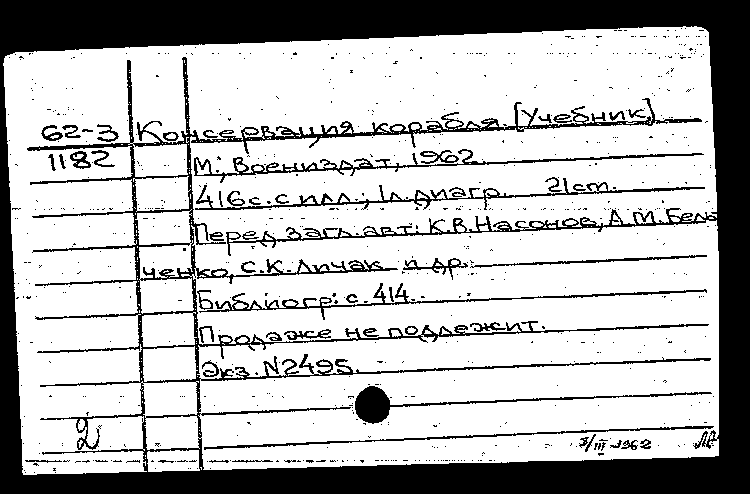 62-3 Консервация корабля. [Учебник]
1182 М., Воениздат, 1962.
416с. с илл.; 1л. диагр. 21cm.
Перед загл. авт.: К.В. Насонов, А.М. Бель
ченко, С.К. Личак и др.
Библиогр: с. 414.
Продаже не подлежит.
Экз. N2495.
2
/III 1962